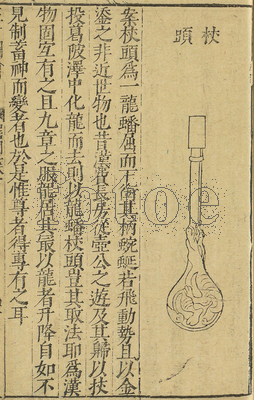 杖頭
案杖頭爲一龍蟠屈而上銜其柄蜿蜒若飛動勢且以金
塗之非近世物也昔嘗費長房從壺公之遊及其歸以杖
投葛陂澤中化龍而去則以龍蟠杖頭豈其取法耶爲漢
物固宜有之且九章之服龍居其最以龍者升降自如不
見制畜神而變者也於是惟尊者得專有之耳